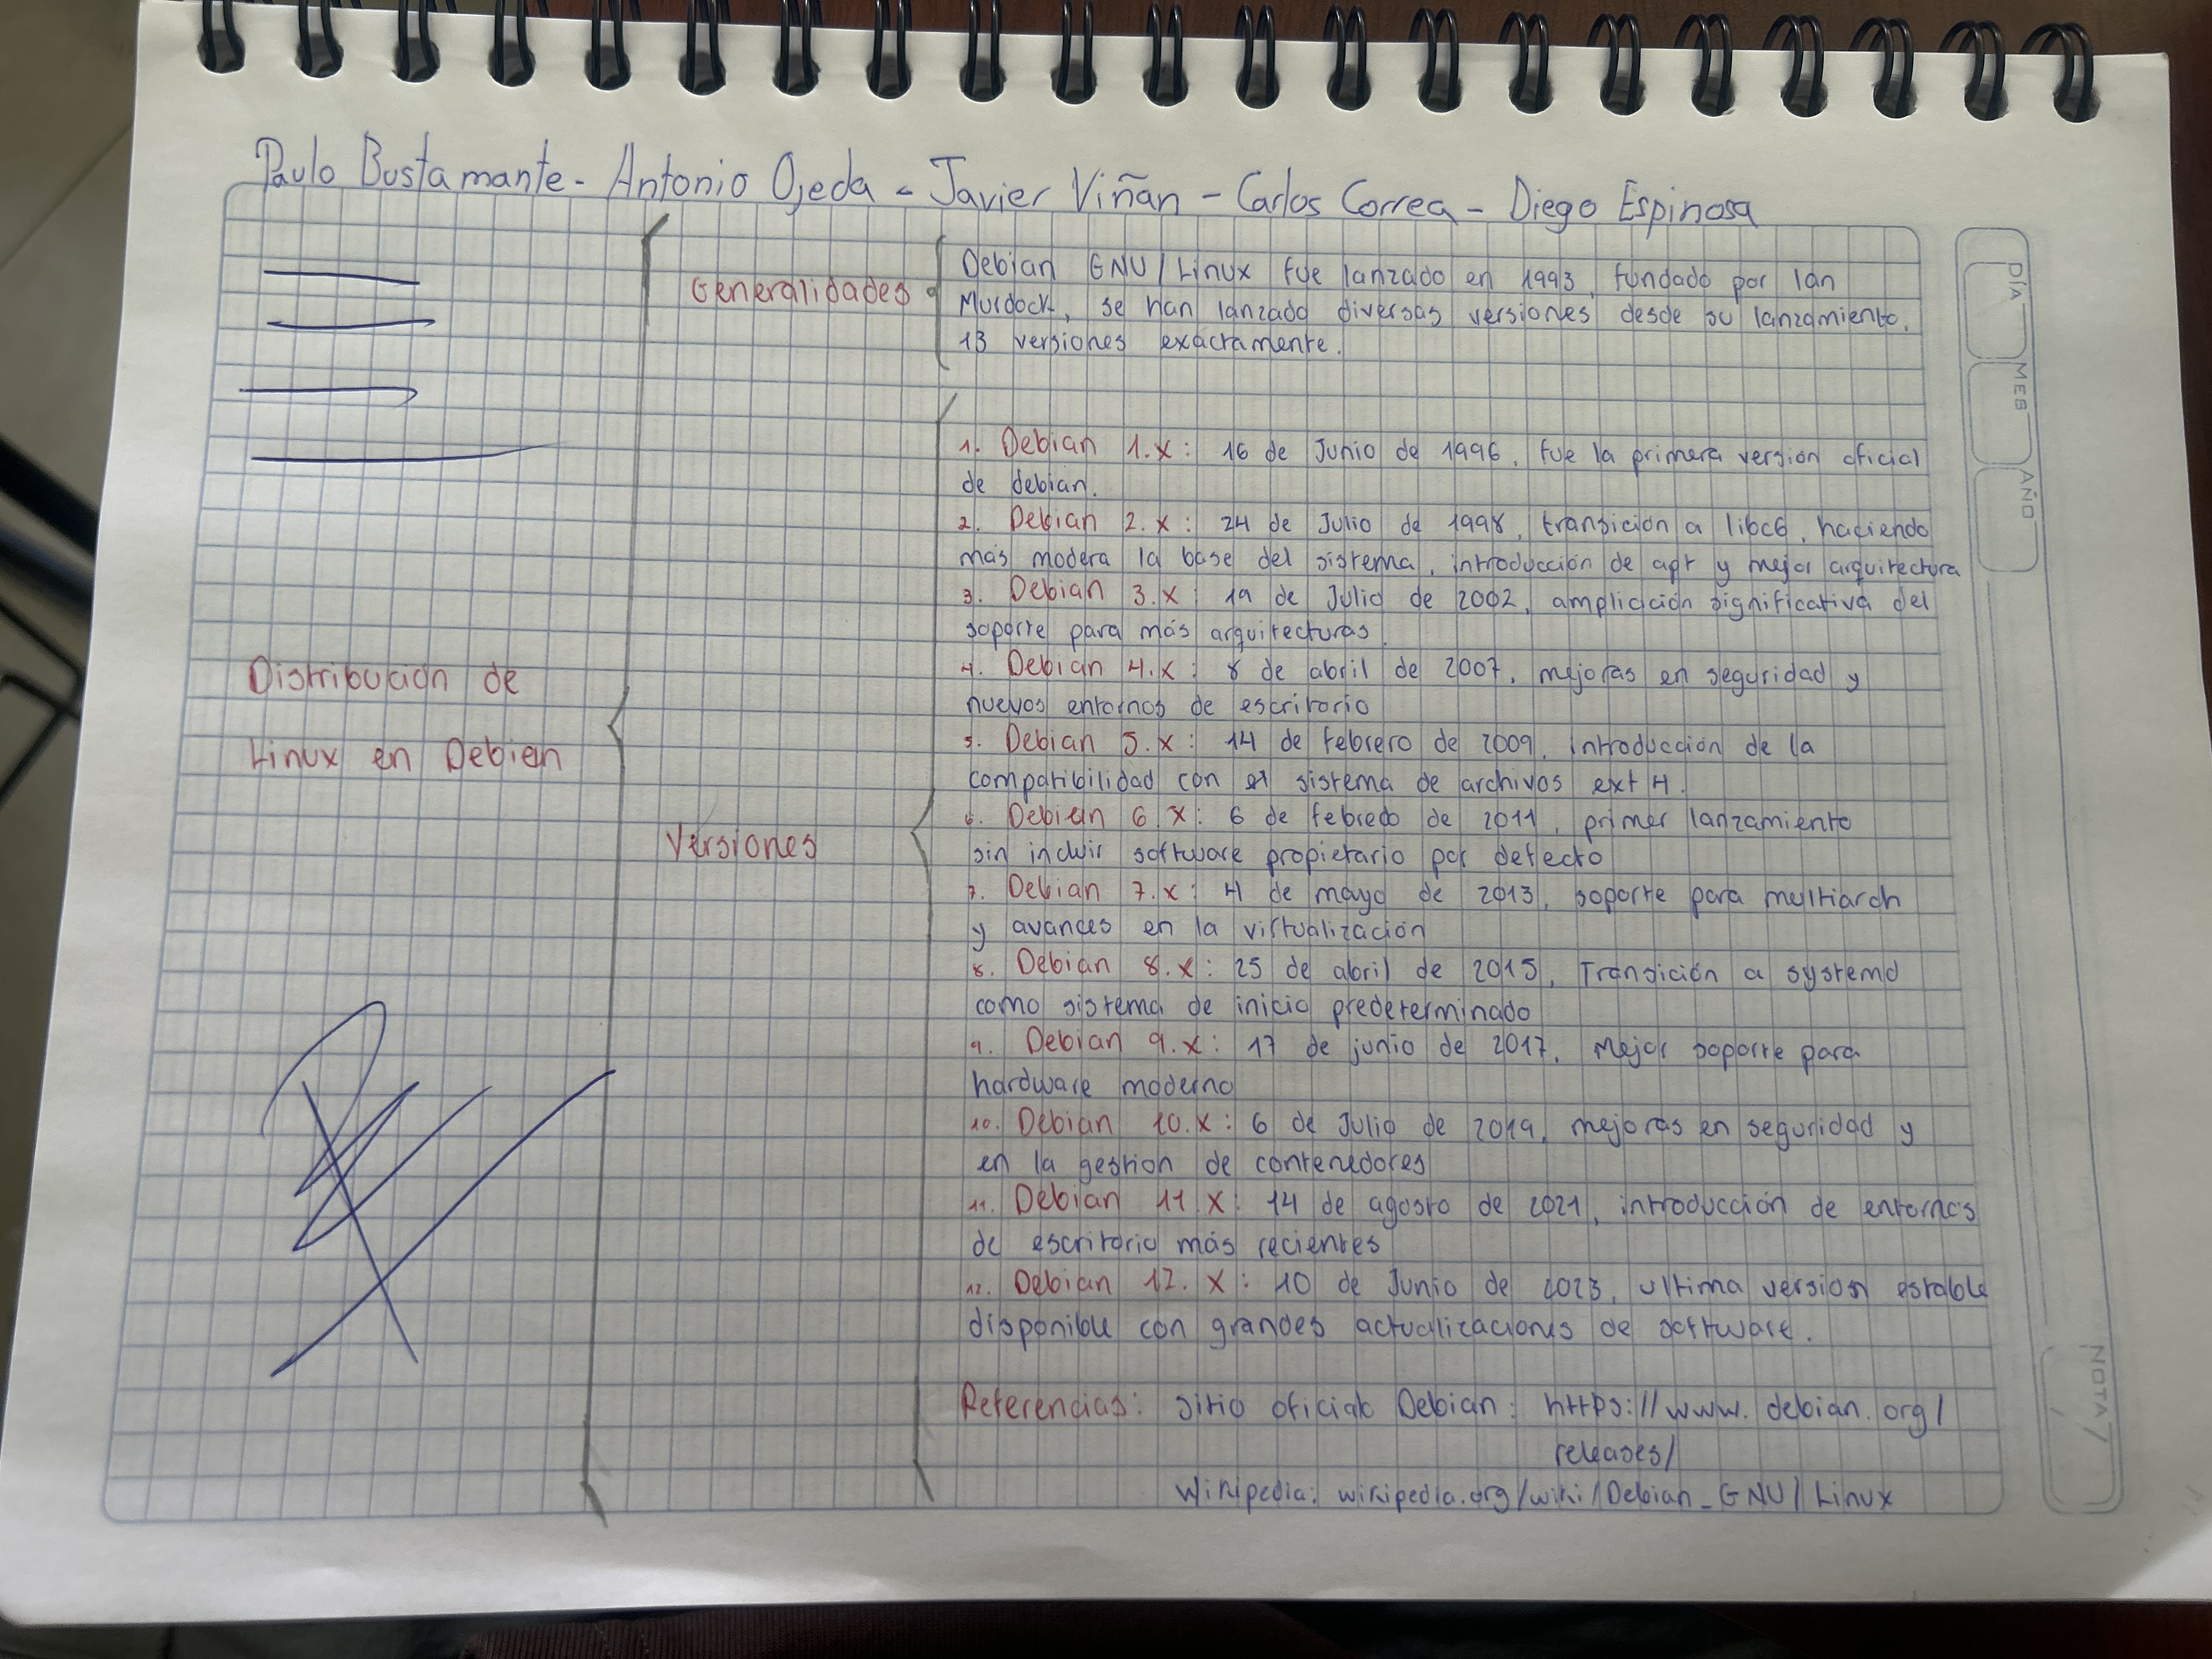 Paulo Bustamante - Antonio Ojeda - Javier Viñan - Carlos Correa - Diego Espinosa
Distribución de
Linux en Debian
Generalidades
Debian GNU/Linux fue lanzado en 1993, fundado por Ian
Murdock, se han lanzado diversas versiones desde su lanzamiento.
13 versiones exactamente.
Versiones
1. Debian 1.x: 16 de Junio de 1996, fue la primera versión oficial
de debian.
2. Debian 2.x: 24 de Julio de 1998, transición a libc6, haciendo
más modera la base del sistema, introducción de apt y mejor arquitectura
3. Debian 3.x: 19 de Julio de 2002, amplición significativa del
soporte para más arquitecturas.
4. Debian 4.x: 8 de abril de 2007, mejoras en seguridad y
nuevos entornos de escritorio
5. Debian 5.x: 14 de febrero de 2009, introducción de la
compatibilidad con el sistema de archivos ext4.
6. Debian 6.x: 6 de febredo de 2011, primer lanzamiento
sin incluir software propietario por defecto
7. Debian 7.x: 4 de mayo de 2013, soporte para multiarch
y avances en la virtualización
8. Debian 8.x: 25 de abril de 2015, Transición a systemd
como sistema de inicio predeterminado
9. Debian 9.x: 17 de junio de 2017, Mejor soporte para
hardware moderno
10. Debian 10.x: 6 de Julio de 2019, mejoras en seguridad y
en la gestion de contenedores
11. Debian 11.x: 14 de agosto de 2021, introducción de entornos
de escritorio más recientes
12. Debian 12.x: 10 de Junio de 2023, ultima version estable
disponible con grandes actualizacions de software.
Referencias: Sitio oficialo Debian: https://www.debian.org/
releases/
Wikipedia: wikipedia.org/wiki/Debian_GNU/Linux
DÍA
MES
AÑO
NOTA